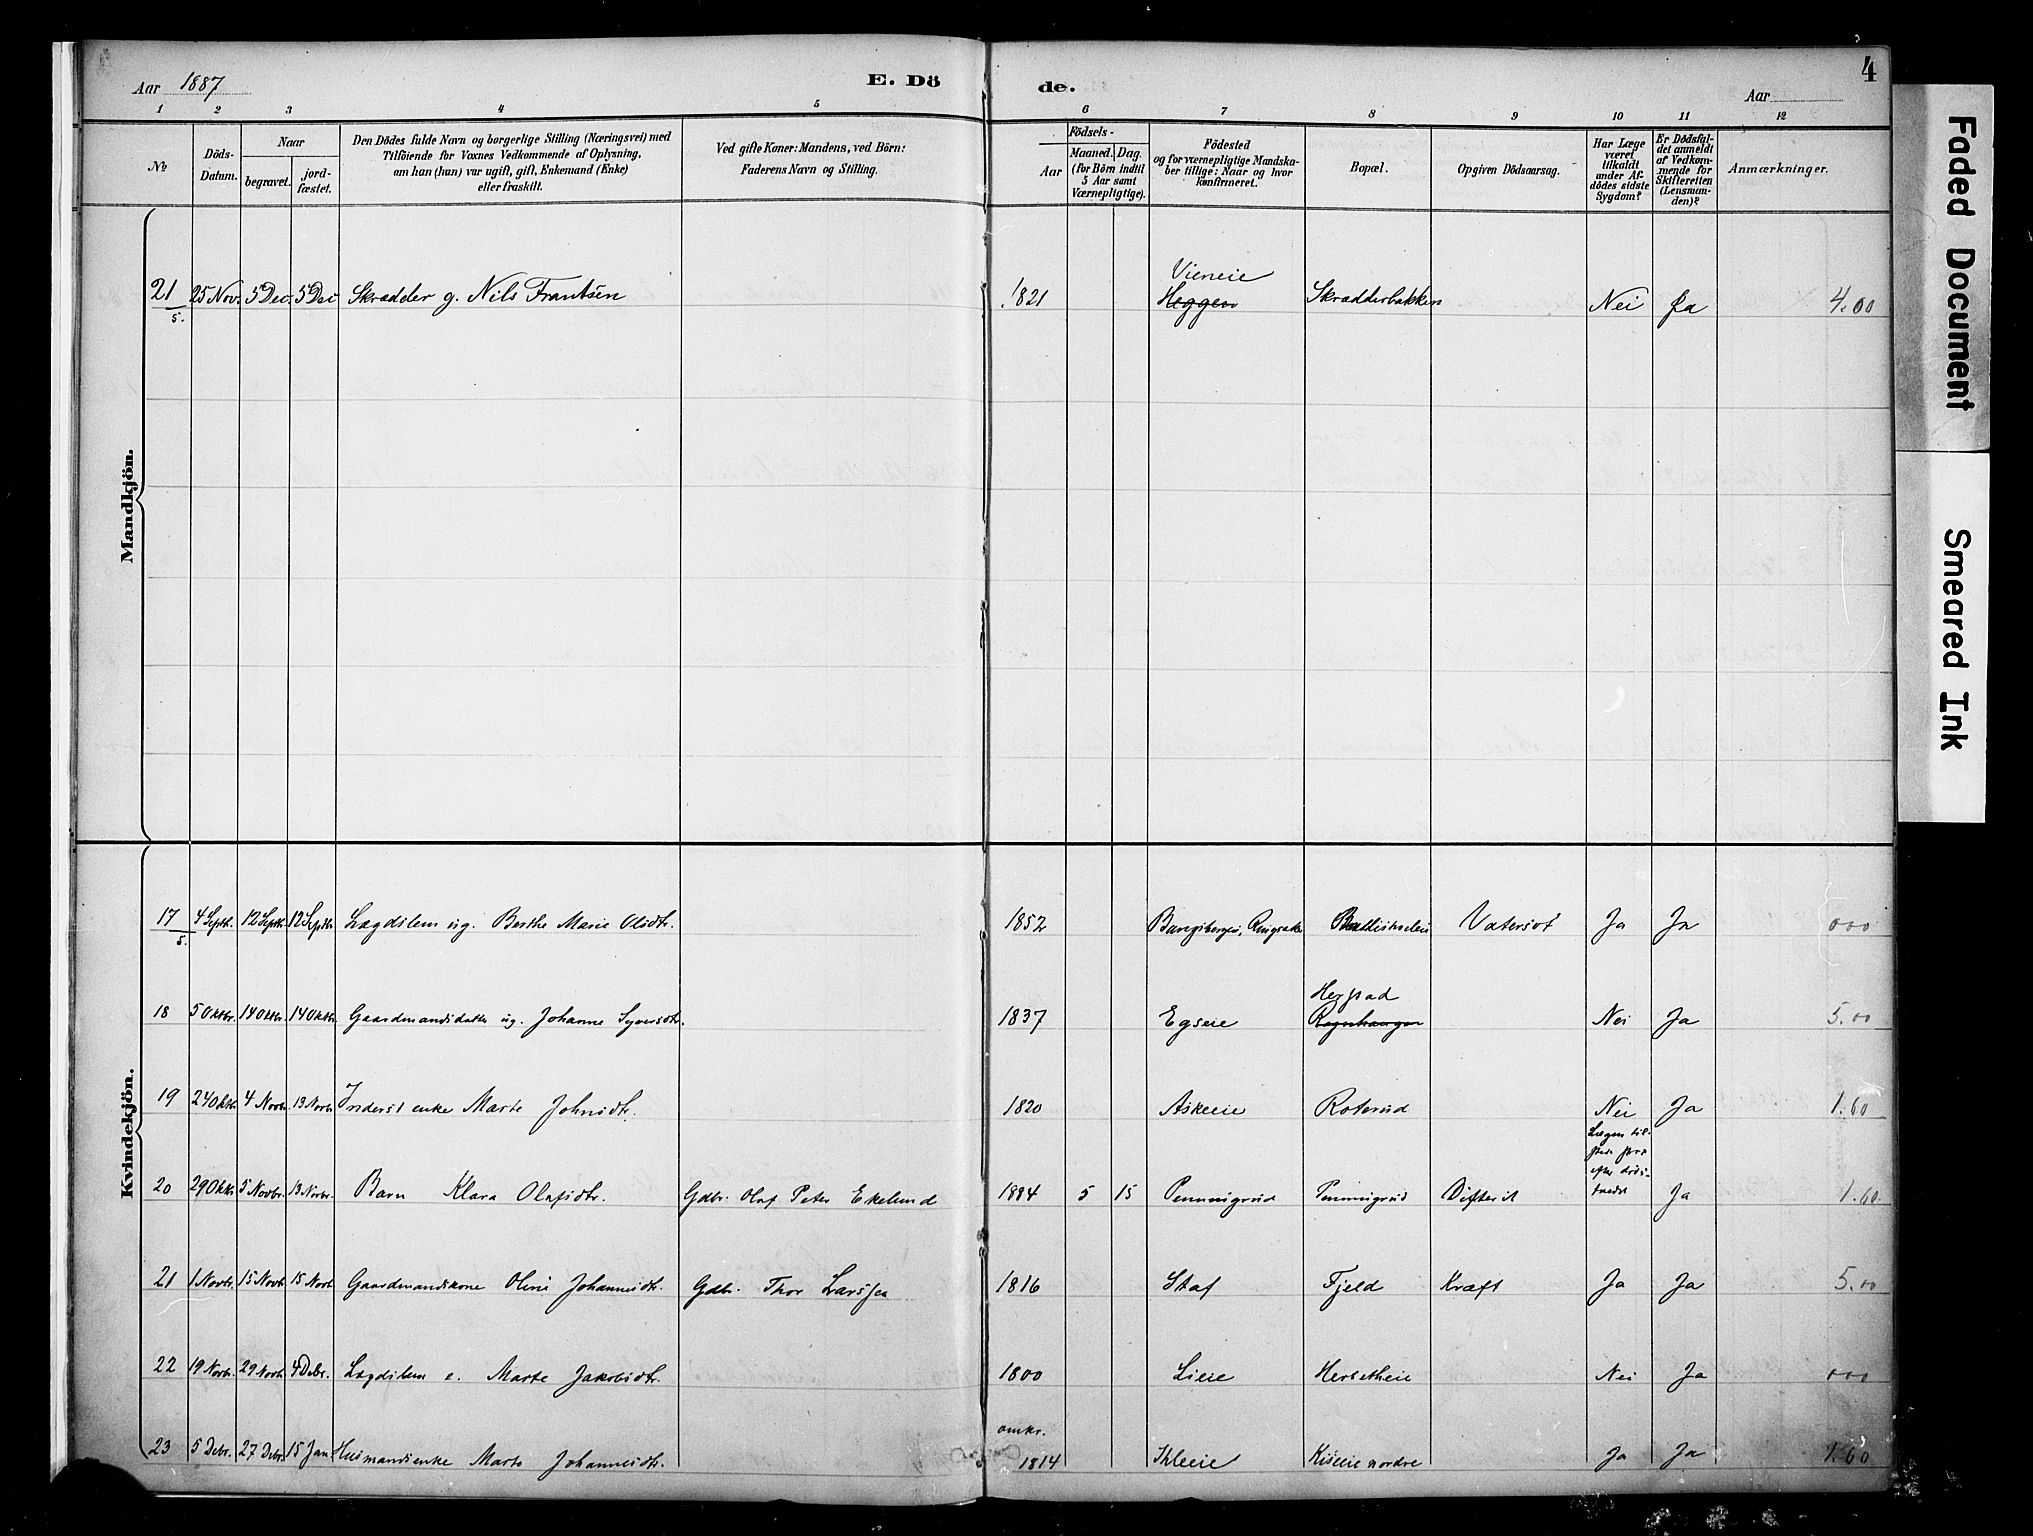 Aar 1887
E. Dö
de.
Aar
4
1 2 3 4 5 6 7 8 9 10 11 12
№
Döds-
Datum.
Naar
begravet.
jord-
fæstet.
Den Dödes fulde Navn og borgerlige Stilling (Næringsvei) med
Tilföiende for Voxnes Vedkommende af Oplysning,
om han (hun) var ugift, gift, Enkemand (Enke)
eller fraskilt.
Ved gifte Koner: Mandens, ved Börn:
Faderens Navn og Stilling.
Födsels-
Aar
Maaned. Dag.
(for Börn indtil
5 Aar samt
Værnepligtige).
Födested
og for værnepligtige Mandska-
ber tillige: Naar og hvor
konfirmeret.
Bopæl.
Opgiven Dödsaarsag.
Har Læge
været
tilkaldt
under Af-
dödes sidste
Sygdom?
Er Dödsfal-
det anmeldt
af Vedkom-
mende for
Skifteretten
(Lensman-
den)?
Anmærkninger.
Mandkjön.
Vieneie
21 25 Nov. 5 Dec. 5 Dec Skrædder g. Nils Frantsen 1821 Heggen Skrædderbakken Nei Ja 4.00
5.
Kvindekjön.
17 4 Septb. 12 Septb. 12 Septb. Lægdslem ug. Berthe Marie Olsdtr. 1852 Ringsaker Vatersot Ja Ja 000
5.
Hegstad
18 5 Oktbr. 14 Oktbr. 14 Oktbr. Gaardmandsdatter ug. Johanne Syversdtr. 1837 Egseie Nei Ja 5.00
19 24 Oktbr. 4 Novbr. 13 Novbr. Inderst enke Marte Johnsdtr. 1820 Askeeie Roterud Nei Ja 1.60
Lægen til-
efter döds-
20 29 Oktbr. 5 Novbr. 13 Novbr. Barn Klara Olafsdtr. Gdbr. Olaf Peter Ekelund 1884 5 15 Pennigrud Pennigrud Difterit Ja 1.60
21 1 Novbr. 15 Novbr. 15 Novb. Gaardmandskone Oline Johannesdtr. Gdbr. Thor Larssen 1816 Staf Fjeld Kræft Ja Ja 5.00
22 19 Novbr. 29 Novbr. 4 Decbr. Lægdslem e. Marte Jakobsdtr. 1800 Lieie Nei Ja 000
omkr.
23 5 Decbr. 27 Decbr. 15 Jan. Husmandsenke Marte Johannesdtr. 1814 Ihleeie Kiseeie nordre Ja Ja 1.60
Faded Document
Smeared Ink